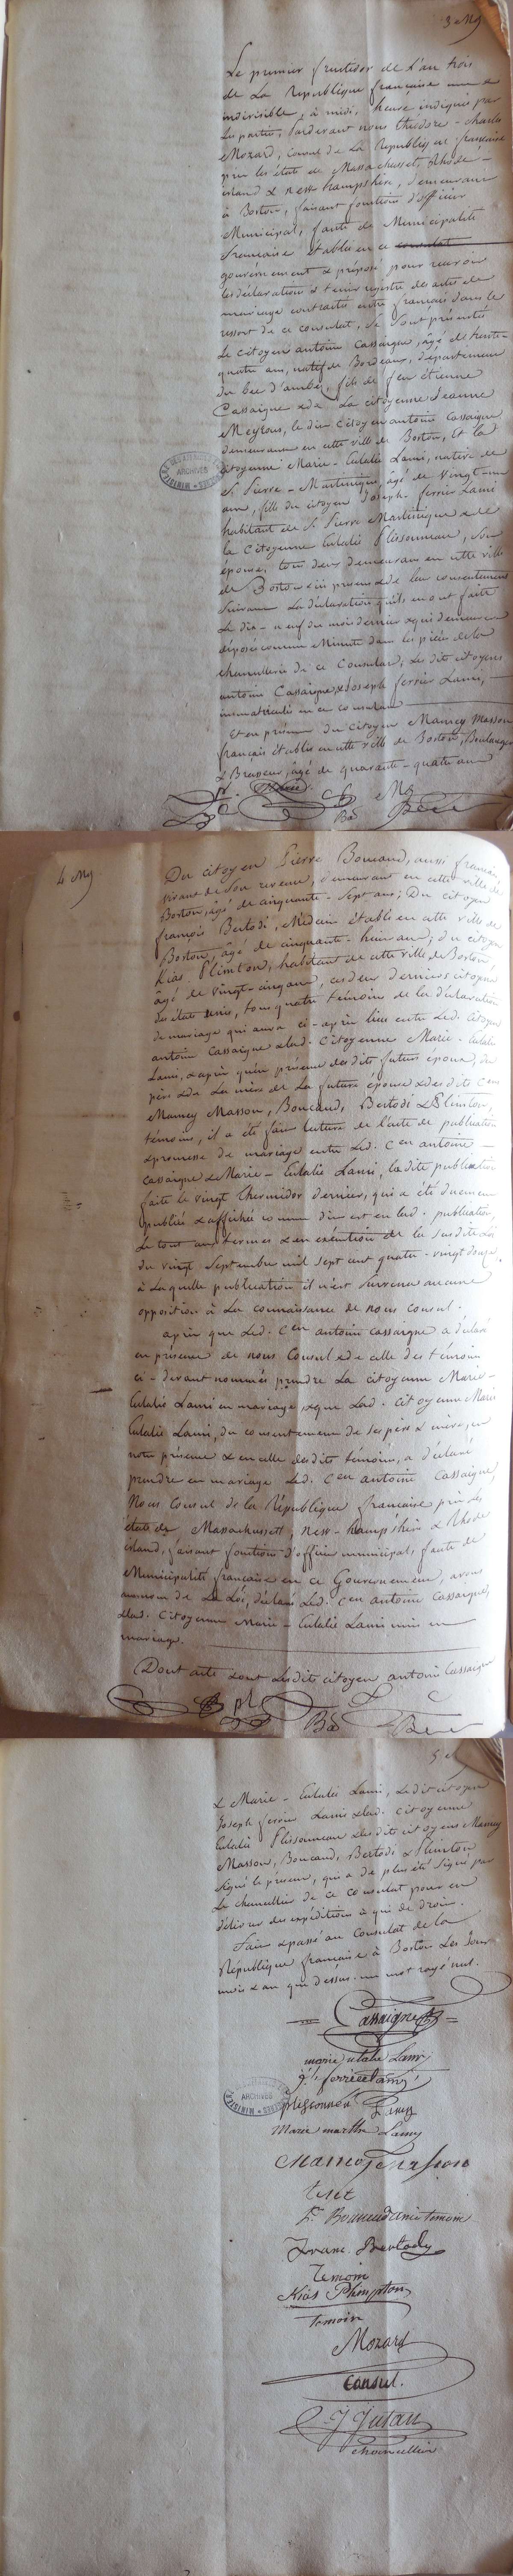 3 Mg
Le premier fructidor de l'an trois
de La République française une &
indivisible, à midi, heure indiquée par
les parties, Pardevant nous théodore-charles
Mozard, Consul de La République française
près les états de Massachusset, Rhode-
island & New hampshire, demeurant
à Boston, faisant fonctions d'officier
Municipal, faute de Municipalité
française établie en ce consulat
gouvernement & préposé pour recevoir
les déclarations & tenir registre des actes de
mariage contractés entre français dans le
ressort de ce consulat, se sont présentés
Le citoyen antoine Cassaigne, âgé de trente-
quatre ans, natif de Bordeaux, département
du bec d'ambès, fils de feu étienne
Cassaigne & de La citoyenne Jeanne
Meyrous, le dit Citoyen antoine Cassaigne
demeurant en cette ville de Boston, Et la
Citoyenne Marie-Eulalie Lami, native de
St Pierre-Martinique, âgé de vingt-un
ans, fille du citoyen Joseph ferrier Lami
habitant de St Pierre Martinique & de
la Citoyenne Eulalie Plissonneau, son
épouse, tous deux demeurans en cette ville
de Boston & ici présens & de leur consentement
suivant La déclaration qu'ils en ont faite
Le dix-neuf du mois dernier & qui demeure
déposée comme Minute dans les pièces de la
chancellerie de ce Consulat, les dits citoyens
antoine Cassaigne & Joseph ferrier Lami,
immatriculés en ce consulat
Et en présence du citoyen Mamey Masson
français établi en cette ville de Boston, Boulanger
& Brasseur, âgé de quarante-quatre ans
Mg
4 Mg
Du citoyen Pierre Boucaud, aussi français,
vivant de son revenu, demeurant en cette ville de
Boston, âgé de cinquante-sept ans; Du citoyen
françois Bertodi, Médecin établi en cette ville de
Boston, âgé de cinquante-huit ans; du citoyen
Kias Plimton, habitant de cette ville de Boston
âgé de vingt-cinq ans, ces deux derniers citoyens
des états unis, tous quatre témoins de la déclaration
de mariage qui aura ci-après lieu entre Led. Citoyen
antoine Cassaigne & lad. Citoyenne Marie-Eulalie
Lami, & après qu'en présence des dits futurs époux, du
père & de La mère de La future épouse & des dits Cens
Mamey Masson, Boucaud, Bertodi & Plimton,
témoins, il a été fait lecture de l'acte de publication
& promesse de mariage entre Led. Cen antoine
Cassaigne & Marie-Eulalie Lami, la dite publication
faite le vingt thermidor dernier, qui a été duement
publiée & affichée comme dit est en lad. publication,
Le tout aux termes & en exécution de la susdite Loi
du vingt Septembre mil sept cent quatre-vingt douze,
à laquelle publication il n'est survenu aucune
opposition à La connaissance de nous Consul.
après que Led. Cen antoine Cassaigne a déclaré
en présence de nous Consul & de celle des témoins
ci-devant nommés prendre La citoyenne Marie-
Eulalie Lami en mariage & que Lad. Citoyenne Marie
Eulalie Lami, du consentement de ses père & mère, en
notre présence & en celle desdits témoins, a déclaré
prendre en mariage Led. Cen antoine Cassaigne,
Nous Consul de la République française près Les
états de Massachussett, New-hampshire & Rhode
island, faisant fonctions d'officier municipal, faute de
Municipalité française en ce Gouvernement, avons
au nom de La Loi, déclaré Led. Cen antoine Cassaigne,
& Lad. Citoyenne Marie-Eulalie Lami unis en
mariage.
Dont acte dont Lesdits citoyen antoine Cassaigne
5
& Marie-Eulalie Lami, Ledit citoyen
Joseph ferrier Lami & lad. Citoyenne
Eulalie Plissonneau & lesdits citoyens Mamey
Masson, Boucaud, Bertodi & Plimton
signé le présent, qui a de plus été signé par
Le chancellier de ce consulat pour en
délivrer des expéditions à qui de droit.
Fait & passé au Consulat de la
République française à Boston Les Jour
mois & an que dessus. un mot rayé nul.
Cassaigne
marie eulalie Lamy
ferrier lamy
plissonneau Lamy
Marie marthe Lamy
Mamey Masson
Pre Boucaud temoin
Franc. Bertody
Temoin
Kias Plimpton
temoin
Mozard
Consul.
J Jutau
chancellier
ARCHIVES
ARCHIVES